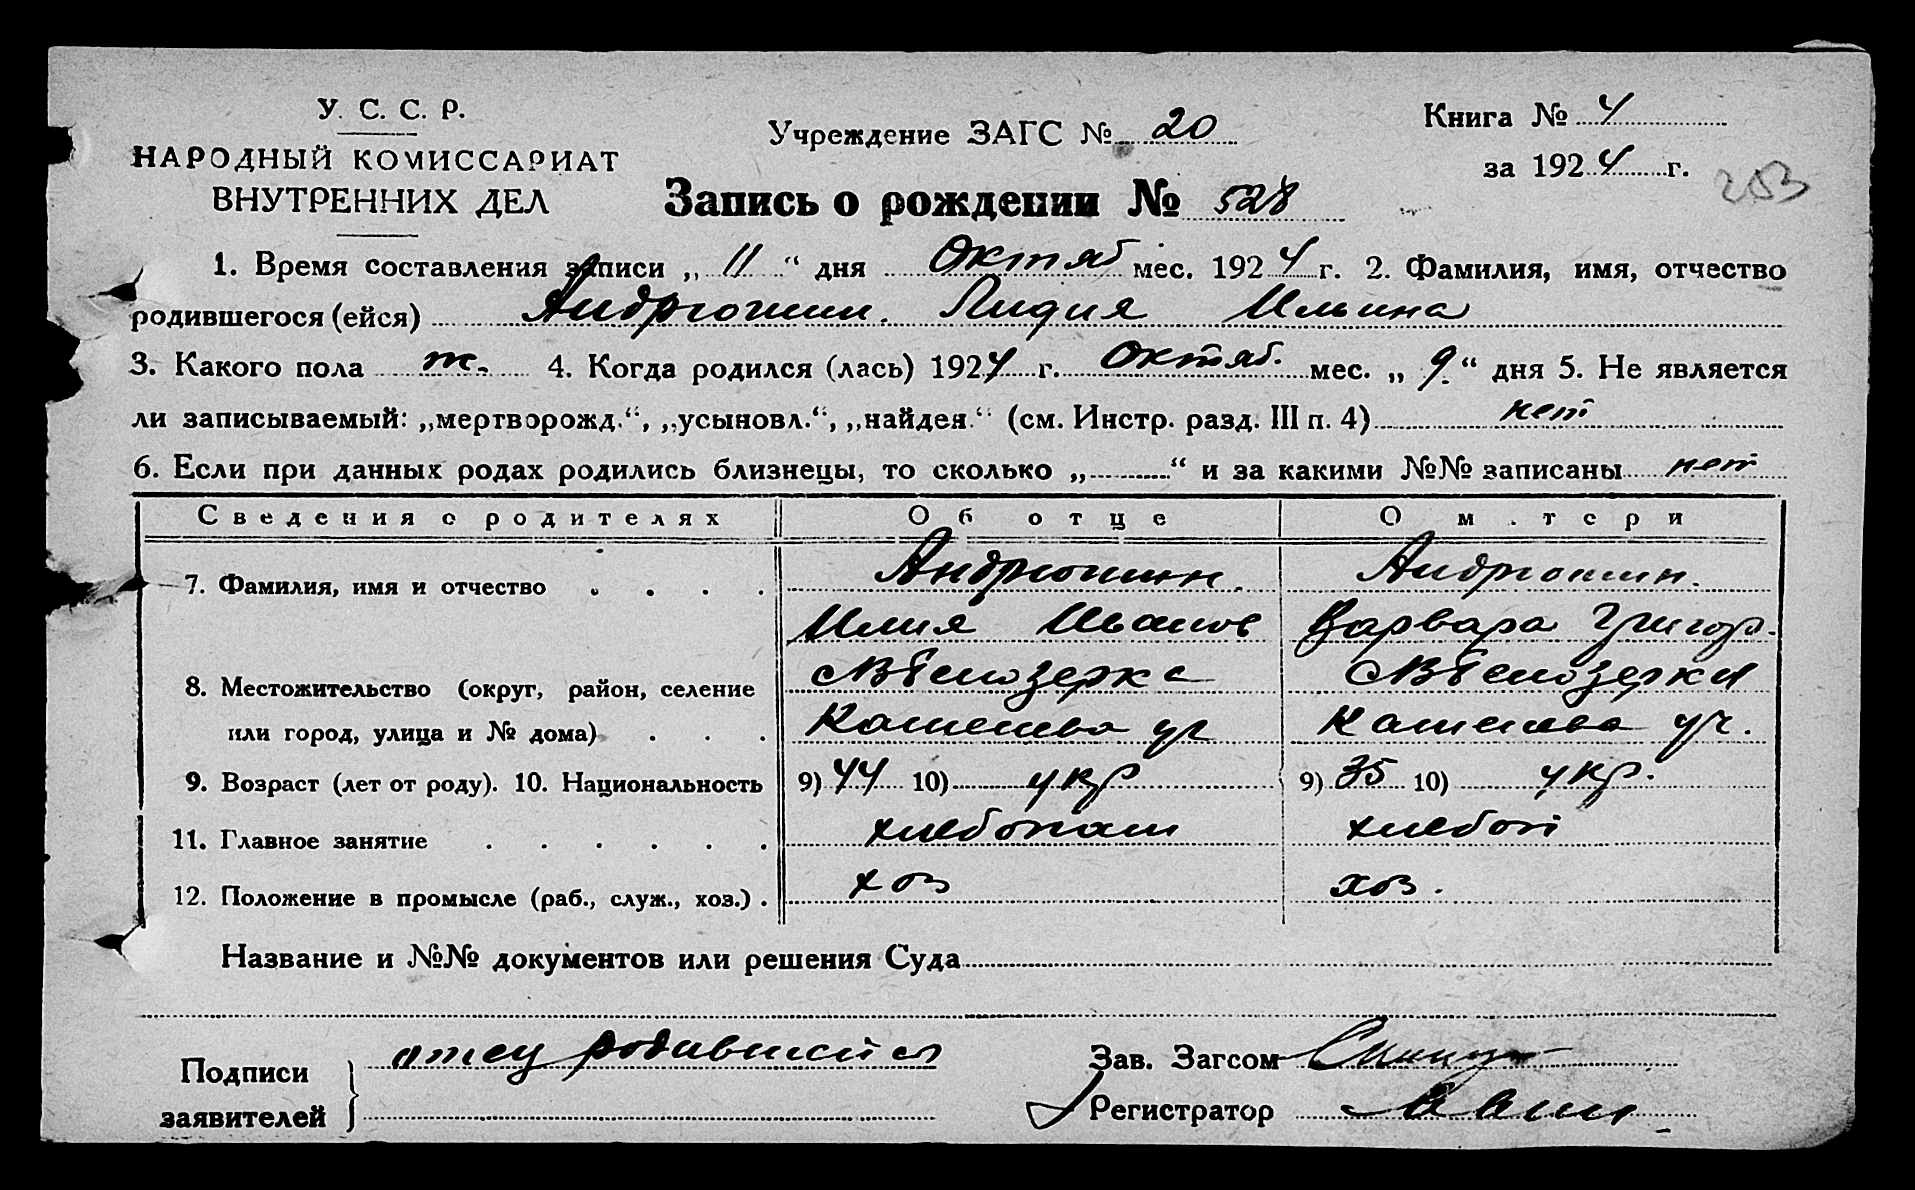 У. С. С. Р.
НАРОДНЫЙ КОМИССАРИАТ
ВНУТРЕННИХ ДЕЛ
Учреждение ЗАГС № 20
Книга № 4
за 1924 г.
253
Запись о рождении № 528
1. Время составления записи „ 11 “ дня Октяб мес. 1924 г. 2. Фамилия, имя, отчество
родившегося (ейся) Андрюшин. Лидия Ильина
3. Какого пола ж. 4. Когда родился (лась) 1924 г. Октяб. мес. „ 9 “ дня 5. Не является
ли записываемый: „мертворожд.“, „усыновл.“, „найден.“ (см. Инстр. разд. III п. 4) нет
6. Если при данных родах родились близнецы, то сколько „ “ и за какими №№ записаны нет
Сведения о родителях Об отце О м.тери
7. Фамилия, имя и отчество Андрюшин. Андрюшин.
Илия Иванов Варвара Григор.
8. Местожительство (округ, район, селение МБелозерка МБелозерка
или город, улица и № дома)
9. Возраст (лет от роду). 10. Национальность 9) 44 10) укр 9) 35 10) укр.
11. Главное занятие хлебопаш хлебоп
12. Положение в промысле (раб., служ., хоз.) хоз хоз.
Название и №№ документов или решения Суда
Подписи заявителей отец родившийся
Зав. Загсом
Регистратор